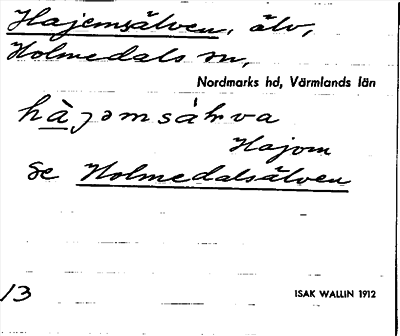 Hajemsälven, älv,
Holmedals sn,
Nordmarks hd, Värmlands län
hàjəmsáɫva
Hajom
Se Holmedalsälven
13
ISAK WALLIN 1912